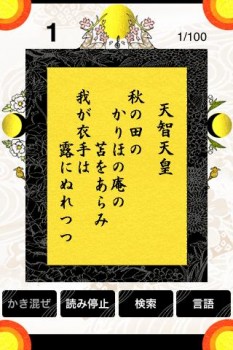 1
1/100
天智天皇
秋の田の
かりほの庵の
苫をあらみ
我が衣手は
露にぬれつつ
かき混ぜ
読み停止
検索
言語